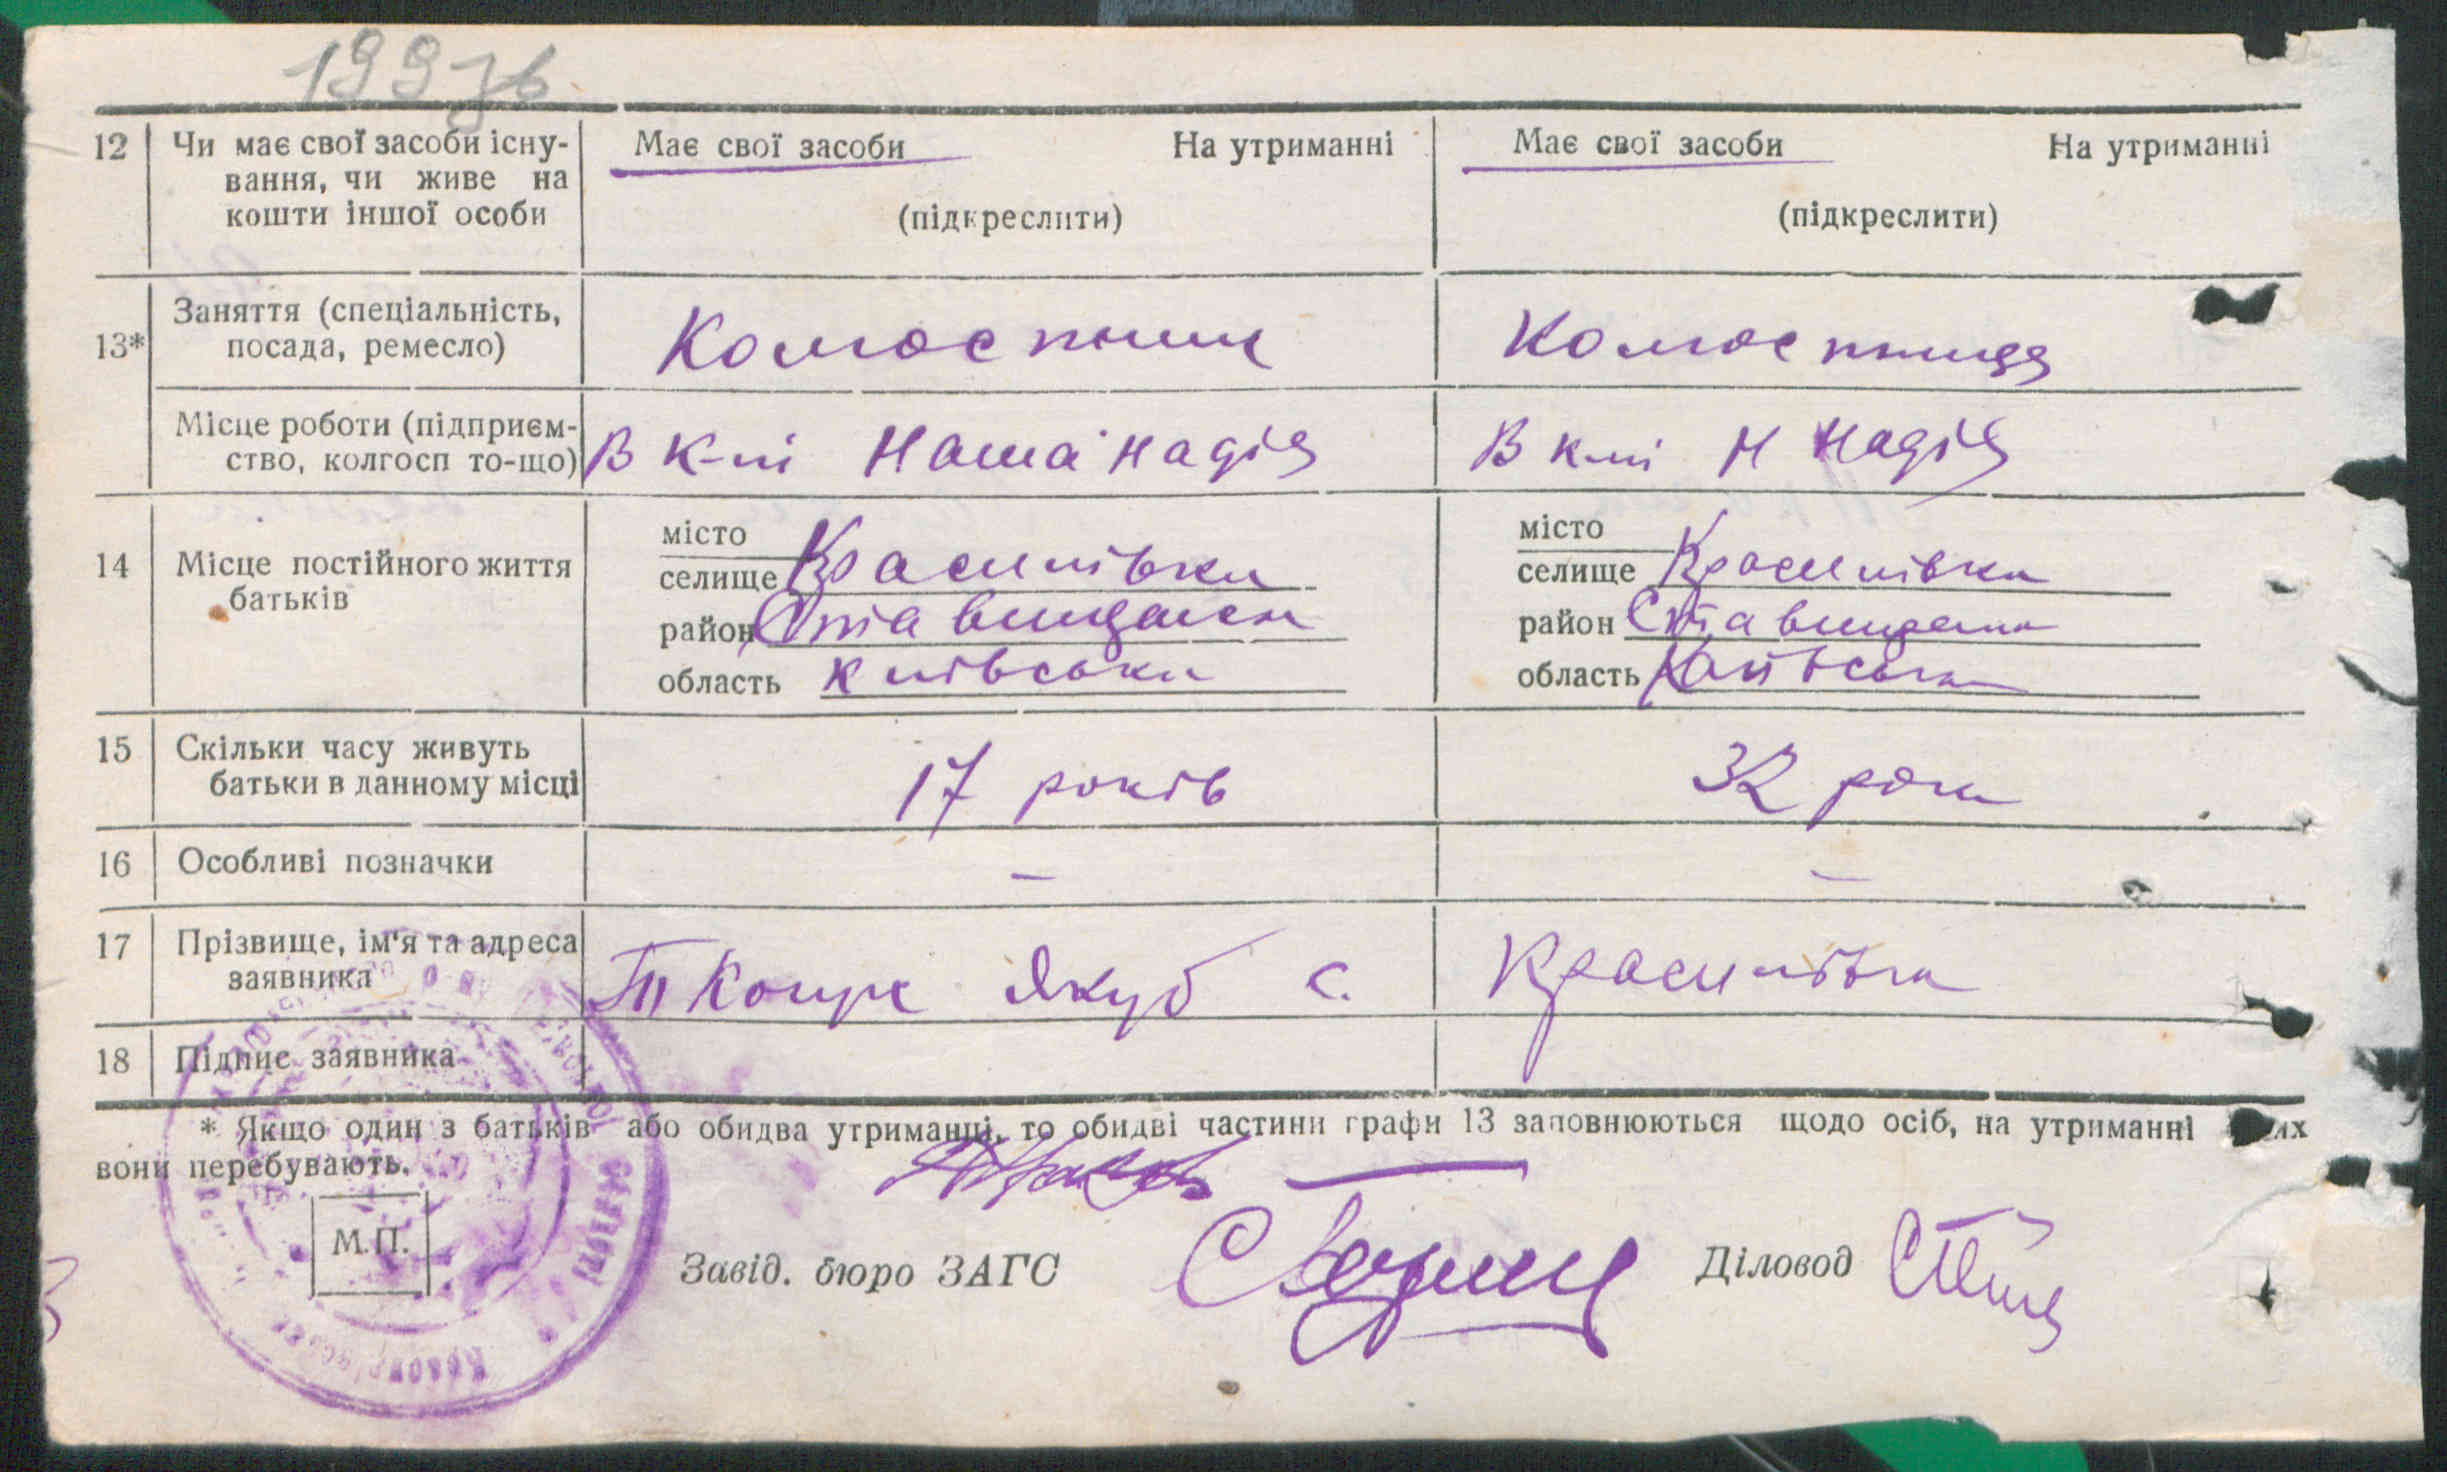 199зв
12 Чи має свої засоби існу- Має свої засоби На утриманні Має свої засоби На утриманні
вання, чи живе на
кошти іншої особи (підкреслити) (підкреслити)
Заняття (спеціальність,
13* посада, ремесло) Колгоспник Колгоспниця
Місце роботи (підприєм-
ство, колгосп то-що) В к-пі Наша надія В к-пі Н Надія
місто місто
14 Місце постійного життя селище Красилівка селище Красилівка
батьків район Ставищанськ район Ставищанськ
область Київська область Київська
15 Скільки часу живуть
батьки в данному місці 17 років 32 роки
16 Особливі позначки — —
17 Прізвище, ім'я та адреса
заявника Ткачук Якуб с. Красилівка
18 Підпис заявника
* Якщо один з батьків або обидва утриманці, то обидві частини графи 13 заповнюються щодо осіб, на утриманні
вони перебувають.
М.П.
Завід. бюро ЗАГС Діловод